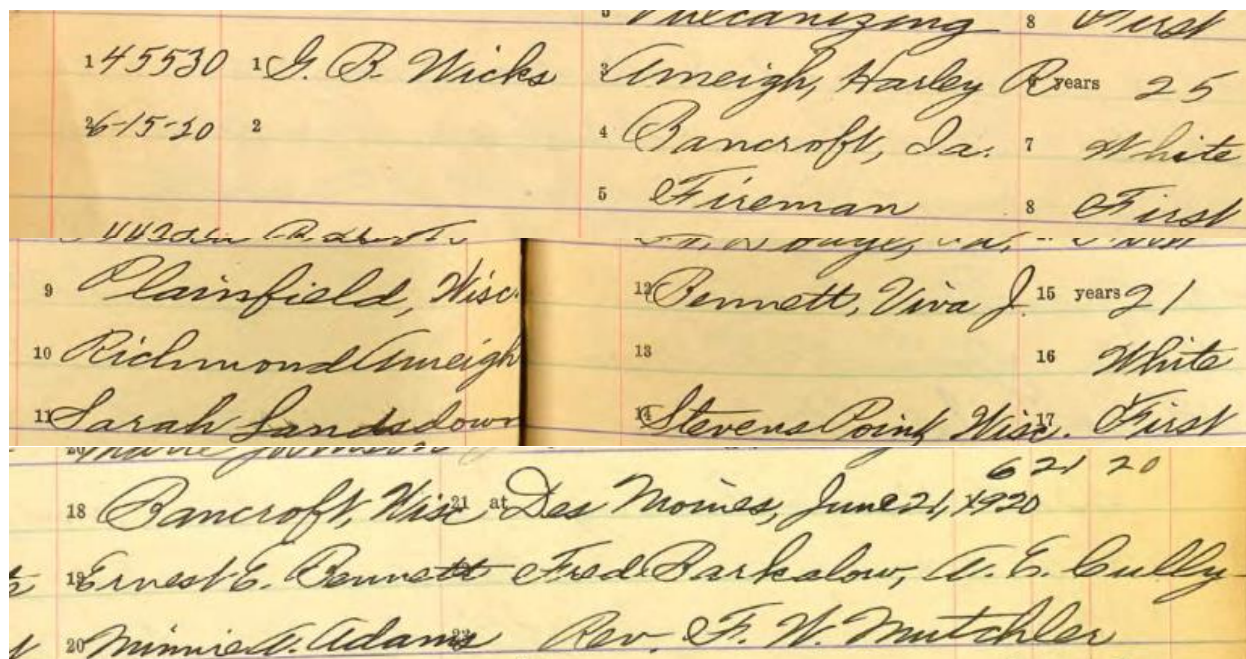 Vulcanizing 8 First
1 45530 1 G. B. Wicks 3 Ameigh, Harley R 6 years 25
2 6-15-20 2 4 Bancroft, Ia. 7 White
5 Fireman 8 First
9 Plainfield, Wisc. 12 Bennett, Viva J. 15 years 21
10 Richmond Ameigh 13 16 White
11 Sarah Landsdown 14 Stevens Point Wisc. 17 First
6 21 20
18 Bancroft, Wisc 21 at Des Moines, June 21, 1920
19 Ernest E. Bennett Fred Barkalow, A. E. Cully
20 Minnie A. Adams 23 Rev. F. W. Mutchler